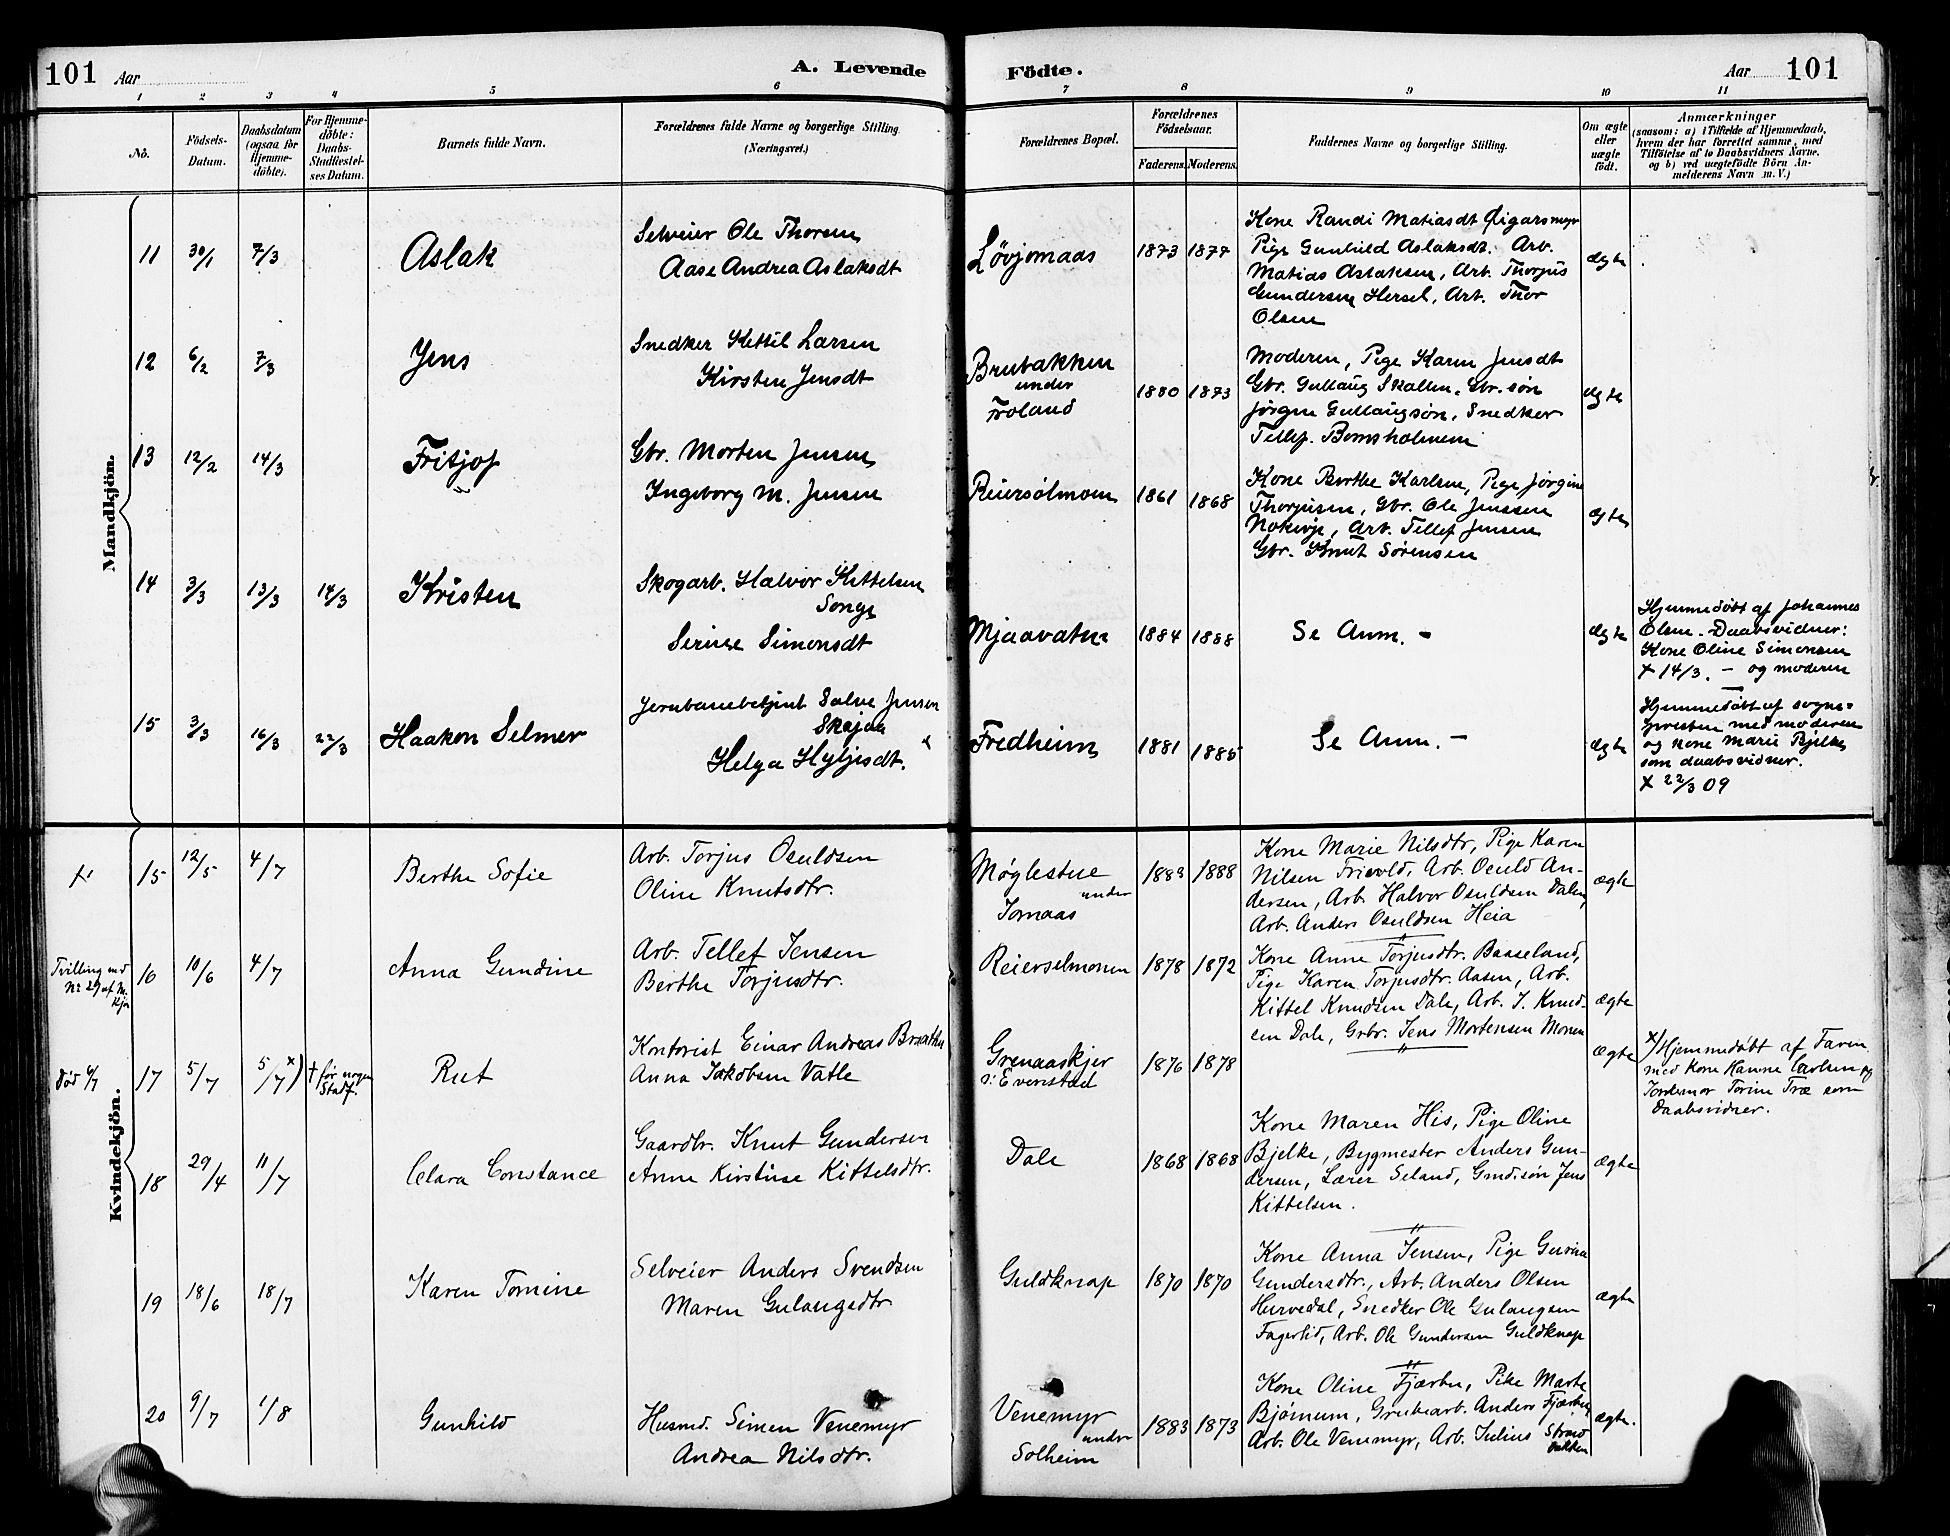 101 Aar A. Levende Födte. Aar 101
1 2 3 4 5 6 7 8 9 10 11
No.
Födsels-
Datum.
Daabsdatum
(ogsaa for
Hjemme-
döbte).
For Hjemme-
döbte:
Daabs-
Stadfæstel-
ses Datum.
Barnets fulde Navn.
Forældrenes fulde Navne og borgerlige Stilling.
(Næringsvei.)
Forældrenes Bopæl.
Forældrenes
Födselsaar.
Faderens. Moderens.
Faddernes Navne og borgerlige Stilling.
Om ægte
eller
uægte
födt.
Anmærkninger
(saasom: a) i Tilfælde af Hjemmedaab,
hvem der har forrettet samme, med
Tilföielse af to Daabsvidners Navne,
og b) ved uægtefödte Börn An-
melderens Navn m. V.)
Mandkjön.
11 30/1 7/3 Aslak
Selveier Ole Thorsen
Aase Andrea Aslaksdt
Løvjomaas 1873 1877
Kone Randi Matiasdt Øigarsmyr
Pige Gunhild Aslaksdt. Arb.
Matias Aslaksen, Arb. Thorjus
Gundersen Hersel, Arb. Thor
Olsen
ægte
12 6/2 7/3 Jens
Snedker Kettil Larsen
Kirsten Jensdt
Brubakken
under
Froland
1880 1873
Moderen, Pige Karen Jensdt
Gbr. Gullaug Skallen, Gbr. søn
Jørgen Gullaugsøn, Snedker
Tellef. Bomsholmen
ægte
13 12/2 14/3 Fritjof
Gbr. Morten Jensen
Ingeborg M. Jensen
Reiersølmoen 1861 1868
Kone Berthe Karlsen, Pige Jørgine
Thorjusen, Gbr. Ole Jenssen
Arb. Tellef Jensen
Gbr. Knut Sørensen
ægte
14 3/3 13/3 14/3 Kristen
Skogarb. Halvor Kettelsen
Songe
Serine Simonsdt
Mjaavatn 1884 1888
Se Anm. -
ægte
Hjemmedøbt af Johannes
Olsen. Daabsvidner:
Kone Oline Simonsen
+ 14/3. - og moderen
15 3/3 16/3 22/3 Haakon Selmer
Jernbanebetjent Salve Jensen
Skajaa
Helga Hyljesdt.
Fredheim 1881 1885
Se Anm. -
ægte
Hjemmedøbt af sogne-
presten med moderen
og kone Marie Bjelke
som daabsvidner.
+ 22/3 09
Kvindekjön.
15 12/5 4/7 Berthe Sofie
Arb. Torjus Osuldsen
Oline Knutsdtr.
Møglestue
under
Jomaas
1883 1888
Kone Marie Nilsdtr, Pige Karen
Nilsen Frivold, Arb. Osuld An-
dersen, Arb. Halvor Osuldsen Dalen,
Arb. Anders Osuldsen Heia
ægte
Tvilling med
Nr 29 af M.
kjøn
16 10/6 4/7 Anna Gundine
Arb. Tellef Jensen
Berthe Torjusdtr.
Reierselmonen 1878 1872
Kone Anne Torjusdtr. Baaseland,
Pige Karen Torjusdtr. Aasen, Arb.
Kittel Knudsen Dale, Arb. J. Knud-
sen Dale, Grbr. Jens Mortensen Monen
ægte
død 6/7 17 5/7 5/7 x) † før nogen
Stadf.
Rut
Kontorist Einar Andreas Braathen
Anna Jakobsen Vatle
Grenaaskjer
v: Evenstad
1876 1878
ægte
x) Hjemmedøbt af Faren
med Kone Hanne Carlsen og
Jordemor Torine Træ som
Daabsvidner.
18 29/4 11/7 Clara Constance
Gaardbr. Knut Gundersen
Anne Kirstine Kittelsdtr.
Dale 1868 1868
Kone Maren His, Pige Oline
Bjelke, Bygmester Anders Gun-
dersen, Lærer Seland, Grudsøn Jens
Kittelsen.
ægte
19 18/6 18/7 Karen Tomine
Selveier Anders Svendsen
Maren Gulaugsdtr
Guldknap 1870 1870
Kone Anna Jensen, Pige Gurine
Gundersdtr., Arb. Anders Olsen
Hurvedal, Snedker Ole Gulaugsen
Fagerlid, Arb. Ole Gundersen Guldknap
ægte
20 9/7 1/8 Gunhild
Husmd. Simen Venemyr
Andrea Nilsdtr.
Venemyr
under
Solheim
1883 1873
Kone Oline Fjærbu, Pike Marte
Bjørnum, Grubearb. Anders Fjærbu,
Arb. Ole Venemyr, Arb. Julius Strand
bakken
ægte.